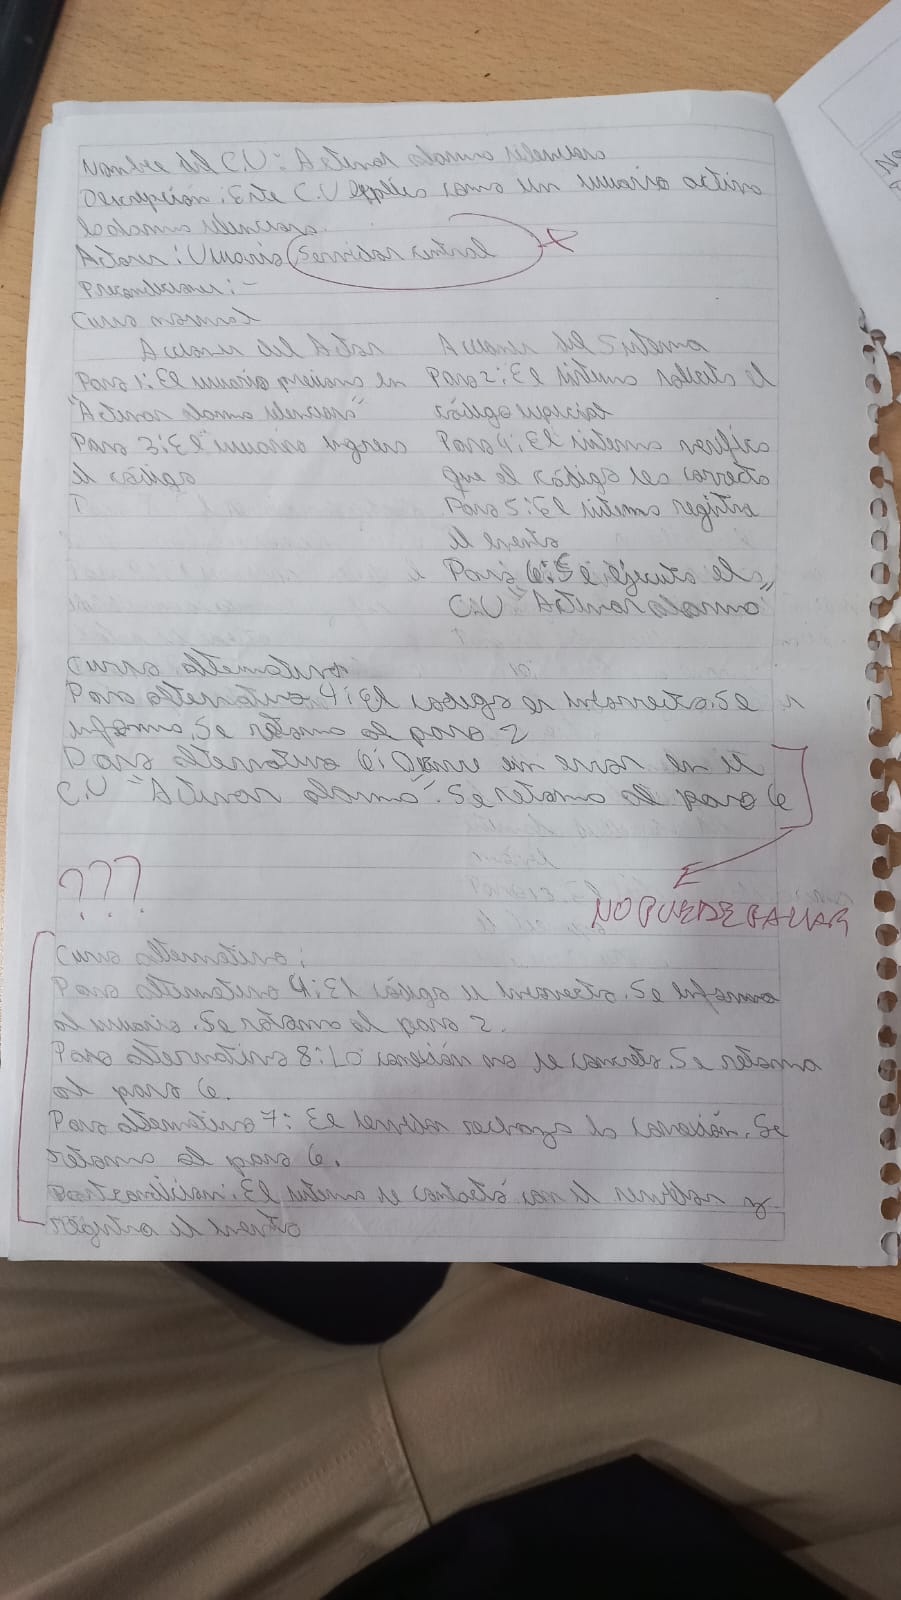 Nombre del C.U: Activar alarma silenciosa
Descripción: Este C.U explica como un usuario activa
la alarma silenciosa.
Actores: Usuario, Servidor central
Precondiciones: -
Curso normal
Acciones del Actor Acciones del Sistema
Paso 1: El usuario presiona en Paso 2: El sistema solicita el
"Activar alarma silenciosa" código especial
Paso 3: El usuario ingresa Paso 4: El sistema verifica
el código que el código sea correcto
Paso 5: El sistema registra
el evento
Paso 6: Se ejecuta el
C.U "Activar alarma"
Curso alternativo
Paso alternativo 4: El código es incorrecto. Se
informa. Se retoma al paso 2
Paso alternativo 6: Ocurre un error en el
C.U "Activar alarma". Se retoma al paso 6
???
NO PUEDE FALLAR
Curso alternativo:
Paso alternativo 4: El código es incorrecto. Se informa
al usuario. Se retoma al paso 2.
Paso alternativo 8: La conexión no se concreta. Se retoma
al paso 6.
Paso alternativo 7: El servidor rechaza la conexión. Se
retoma al paso 6.
Postcondicion: El sistema se contactó con el servidor y
registra el evento